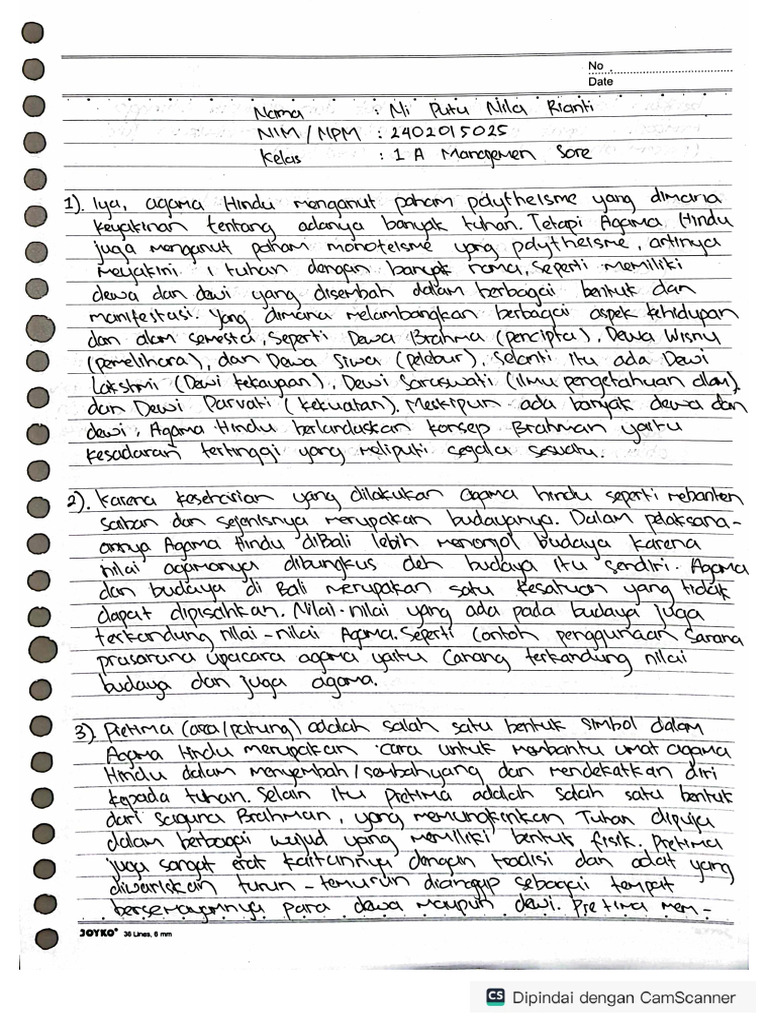 No
Date
Nama : Ni Putu Nila Rianti
NIM / NPM : 2402015025
Kelas : 1 A Manajemen Sore
1). Iya, agama Hindu menganut paham polytheisme yang dimana
keyakinan tentang adanya banyak tuhan. Tetapi Agama Hindu
juga menganut paham monoteisme yang polytheisme, artinya
meyakini 1 tuhan dengan banyak nama, seperti memiliki
dewa dan dewi yang disembah dalam berbagai bentuk dan
manifestasi. Yang dimana melambangkan berbagai aspek kehidupan
dan alam semesta, seperti Dewa Brahma (pencipta), Dewa Wisnu
(pemelihara), dan Dewa Siwa (pelebur), Selanti itu ada Dewi
Lakshmi (Dewi kekayaan), Dewi Saraswati (ilmu pengetahuan alam),
dan Dewi Parvati (kekuatan). Meskipun ada banyak dewa dan
dewi, Agama Hindu berlandaskan konsep Brahman yaitu
kesadaran tertinggi yang meliputi segala sesuatu.
2). Karena keseharian yang dilakukan agama hindu seperti mebanten
saiban dan sejenisnya merupakan budayanya. Dalam pelaksana-
annya Agama Hindu diBali lebih menonjol budaya karena
nilai agamanya dibungkus oleh budaya itu sendiri. Agama
dan budaya di Bali merupakan satu kesatuan yang tidak
dapat dipisahkan. Nilai-nilai yang ada pada budaya juga
terkandung nilai-nilai Agama. Seperti contoh penggunaan sarana
prasarana upacara agama yaitu Canang terkandung nilai
budaya dan juga agama.
3). Pretima (arca/patung) adalah salah satu bentuk simbol dalam
Agama Hindu merupakan cara untuk membantu umat agama
Hindu dalam menyembah/sembahyang dan mendekatkan diri
kepada tuhan. Selain itu Pretima adalah salah satu bentuk
dari saguna Brahman, yang memungkinkan Tuhan dipuja
dalam berbagai wujud yang memiliki bentuk fisik. Pretima
juga sangat erat kaitannya dengan tradisi dan adat yang
diwariskan turun-temurun dianggap sebagai tempat
bersemayamnya para dewa maupun dewi. Pretima mem-
JOYKO 36 Lines, 6 mm
CS Dipindai dengan CamScanner